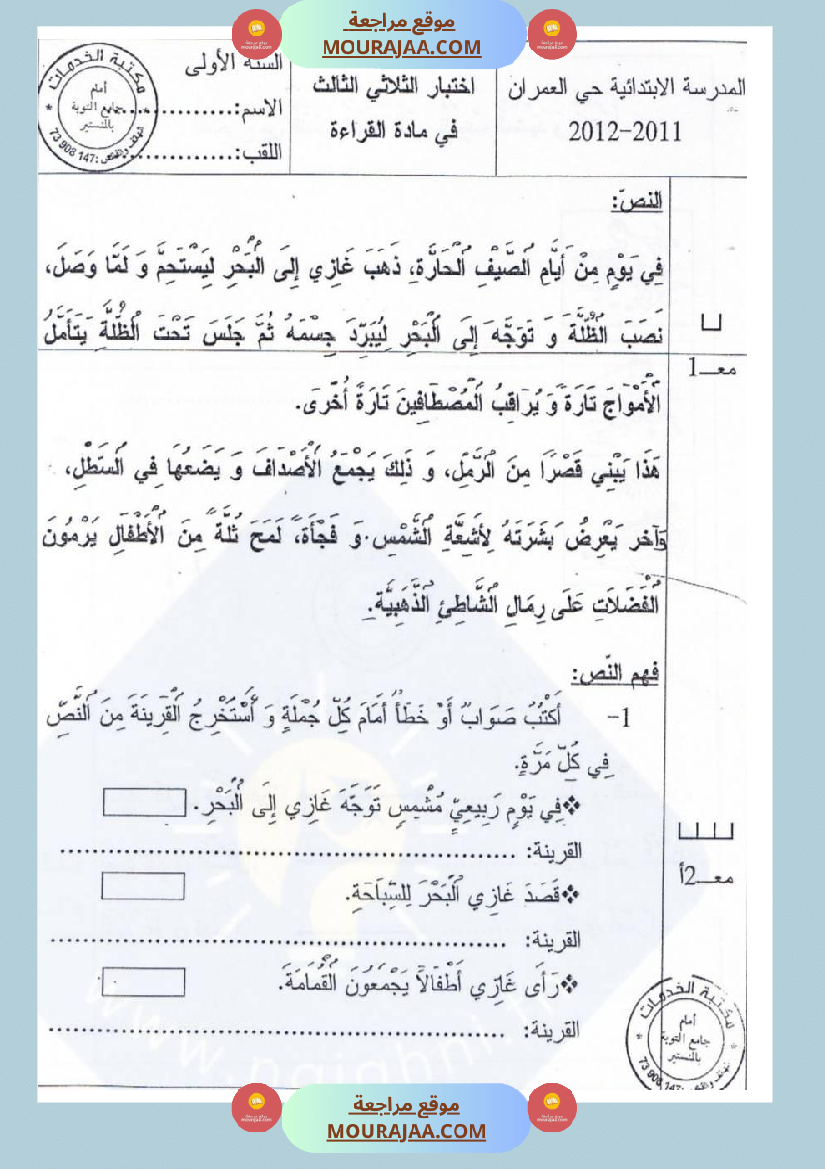 موقع مراجعة
MOURAJAA.COM
المدرسة الابتدائية حي العمران
2012-2011
اختبار الثلاثي الثالث
في مادة القراءة
السنة الأولى
الاسم:...............
اللقب:...............
مكتبة الخدمات
أمام
جامع التوبة
بالمنستير
73 908 147
النصّ:
فِي يَوْمٍ مِنْ أَيَّامِ الصَّيْفِ الْحَارَّةِ، ذَهَبَ غَازِي إِلَى الْبَحْرِ لِيَسْتَحِمَّ وَ لَمَّا وَصَلَ،
نَصَبَ الظُّلَّةَ وَ تَوَجَّهَ إِلَى الْبَحْرِ لِيُبَرِّدَ جِسْمَهُ ثُمَّ جَلَسَ تَحْتَ الظُّلَّةِ يَتَأَمَّلُ
معـ1
الْأَمْوَاجَ تَارَةً وَ يُرَاقِبُ الْمُصْطَافِينَ تَارَةً أُخْرَى.
هَذَا يَبْنِي قَصْرًا مِنَ الرَّمْلِ، وَ ذَلِكَ يَجْمَعُ الْأَصْدَافَ وَ يَضَعُهَا فِي السَّطْلِ،
وَآخَر يَعْرِضُ بَشَرَتَهُ لِأَشِعَّةِ الشَّمْسِ. وَ فَجْأَةً، لَمَحَ ثُلَّةً مِنَ الْأَطْفَالِ يَرْمُونَ
الْفَضَلَاتِ عَلَى رِمَالِ الشَّاطِئِ الذَّهَبِيَّةِ.
فهم النّص:
1- أَكْتُبُ صَوَابٌ أَوْ خَطَأٌ أَمَامَ كُلِّ جُمْلَةٍ وَ أَسْتَخْرِجُ الْقَرِينَةَ مِنَ النَّصِّ
فِي كُلِّ مَرَّةٍ.
❖فِي يَوْمٍ رَبِيعِيٍّ مُشْمِسٍ تَوَجَّهَ غَازِي إِلَى الْبَحْرِ.
القرينة: ......................................................
معـ2أ
❖قَصَدَ غَازِي الْبَحْرَ لِلسِّبَاحَةِ.
القرينة: ......................................................
❖رَأَى غَازِي أَطْفَالًا يَجْمَعُونَ الْقُمَامَةَ.
القرينة: ......................................................
مكتبة الخدمات
أمام
جامع التوبة
بالمنستير
موقع مراجعة
MOURAJAA.COM